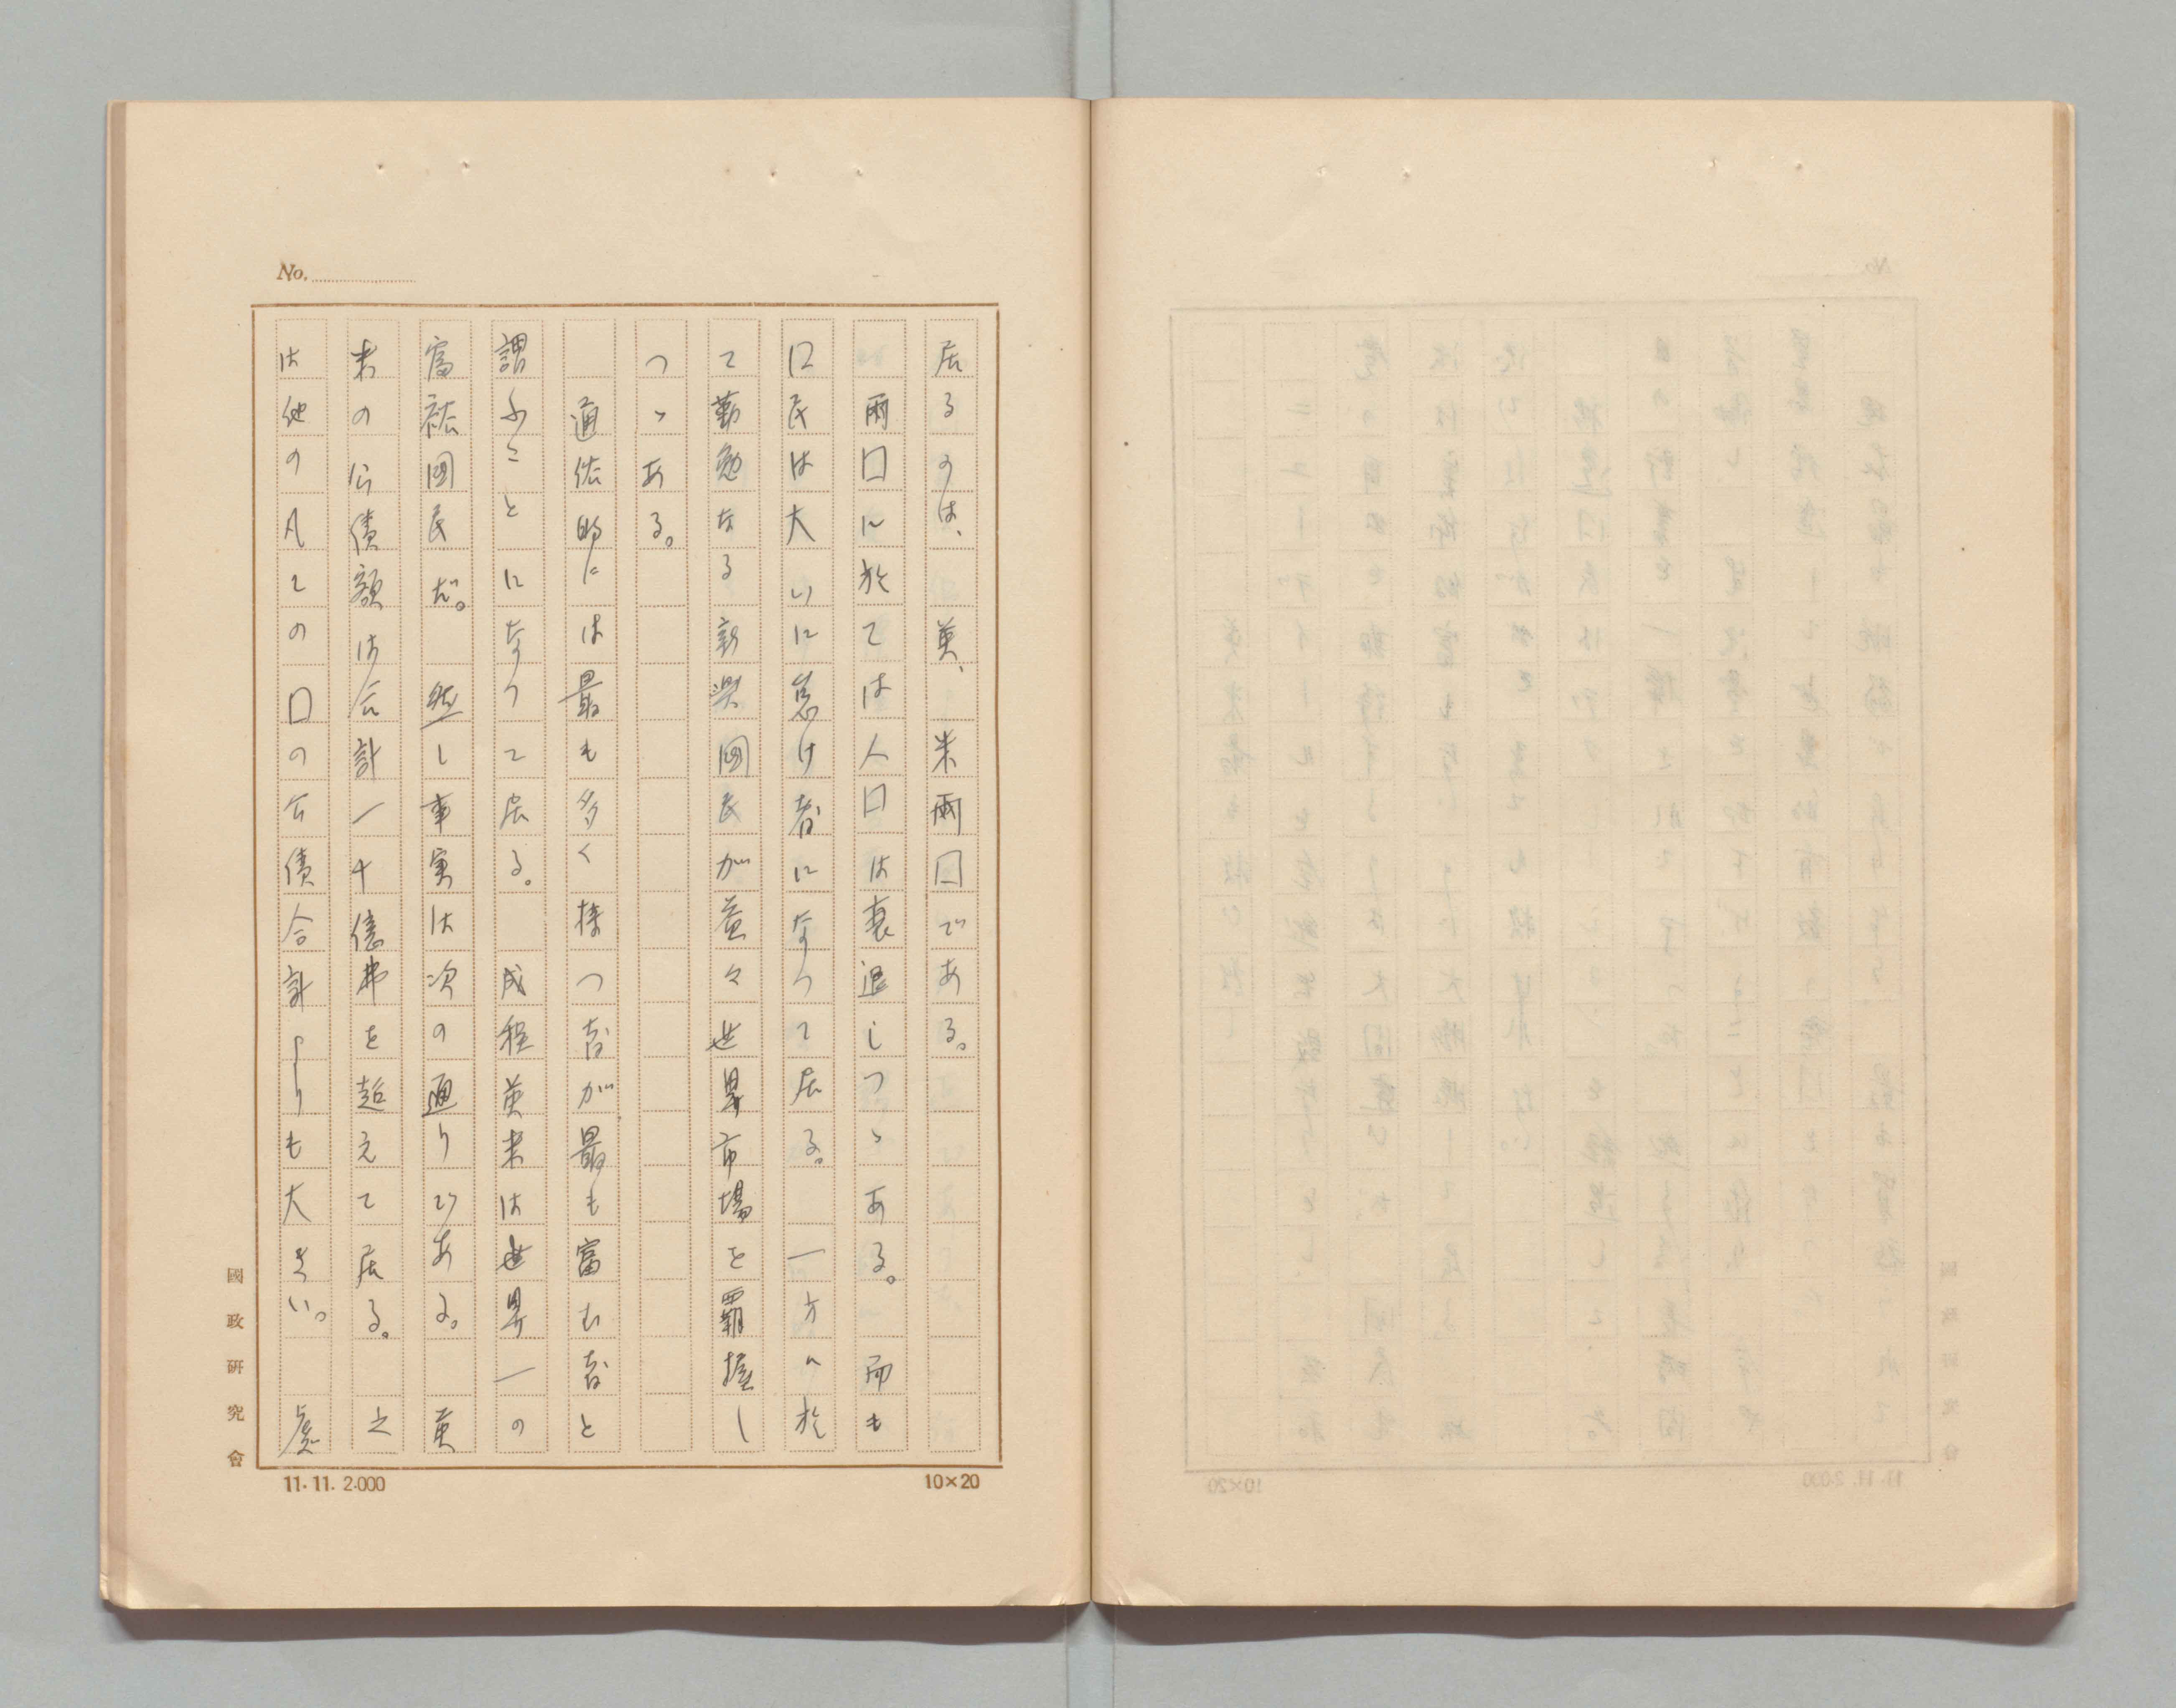 No.
居るのは、英、米兩囗である。
兩囗に於ては人口は衰退しつゝある。而も
囗民は大いに怠け者になつて居る。一方に於
て勤勉なる新興國民が益々世界市場を覇握し
つゝある。
通俗的には最も多く持つ者が最も富む者と
謂ふことになつて居る。成程英米は世界一の
富裕國民だ。然し事実は次の通りである。英
米の公債額は合計一千億弗を超えて居る。之
は他の凡ての囗の公債合計よりも大きい。處
國政研究會
11.11.2.000
10×20